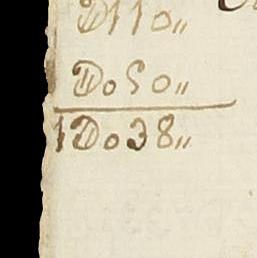 D110„
Do50„
1Do38„